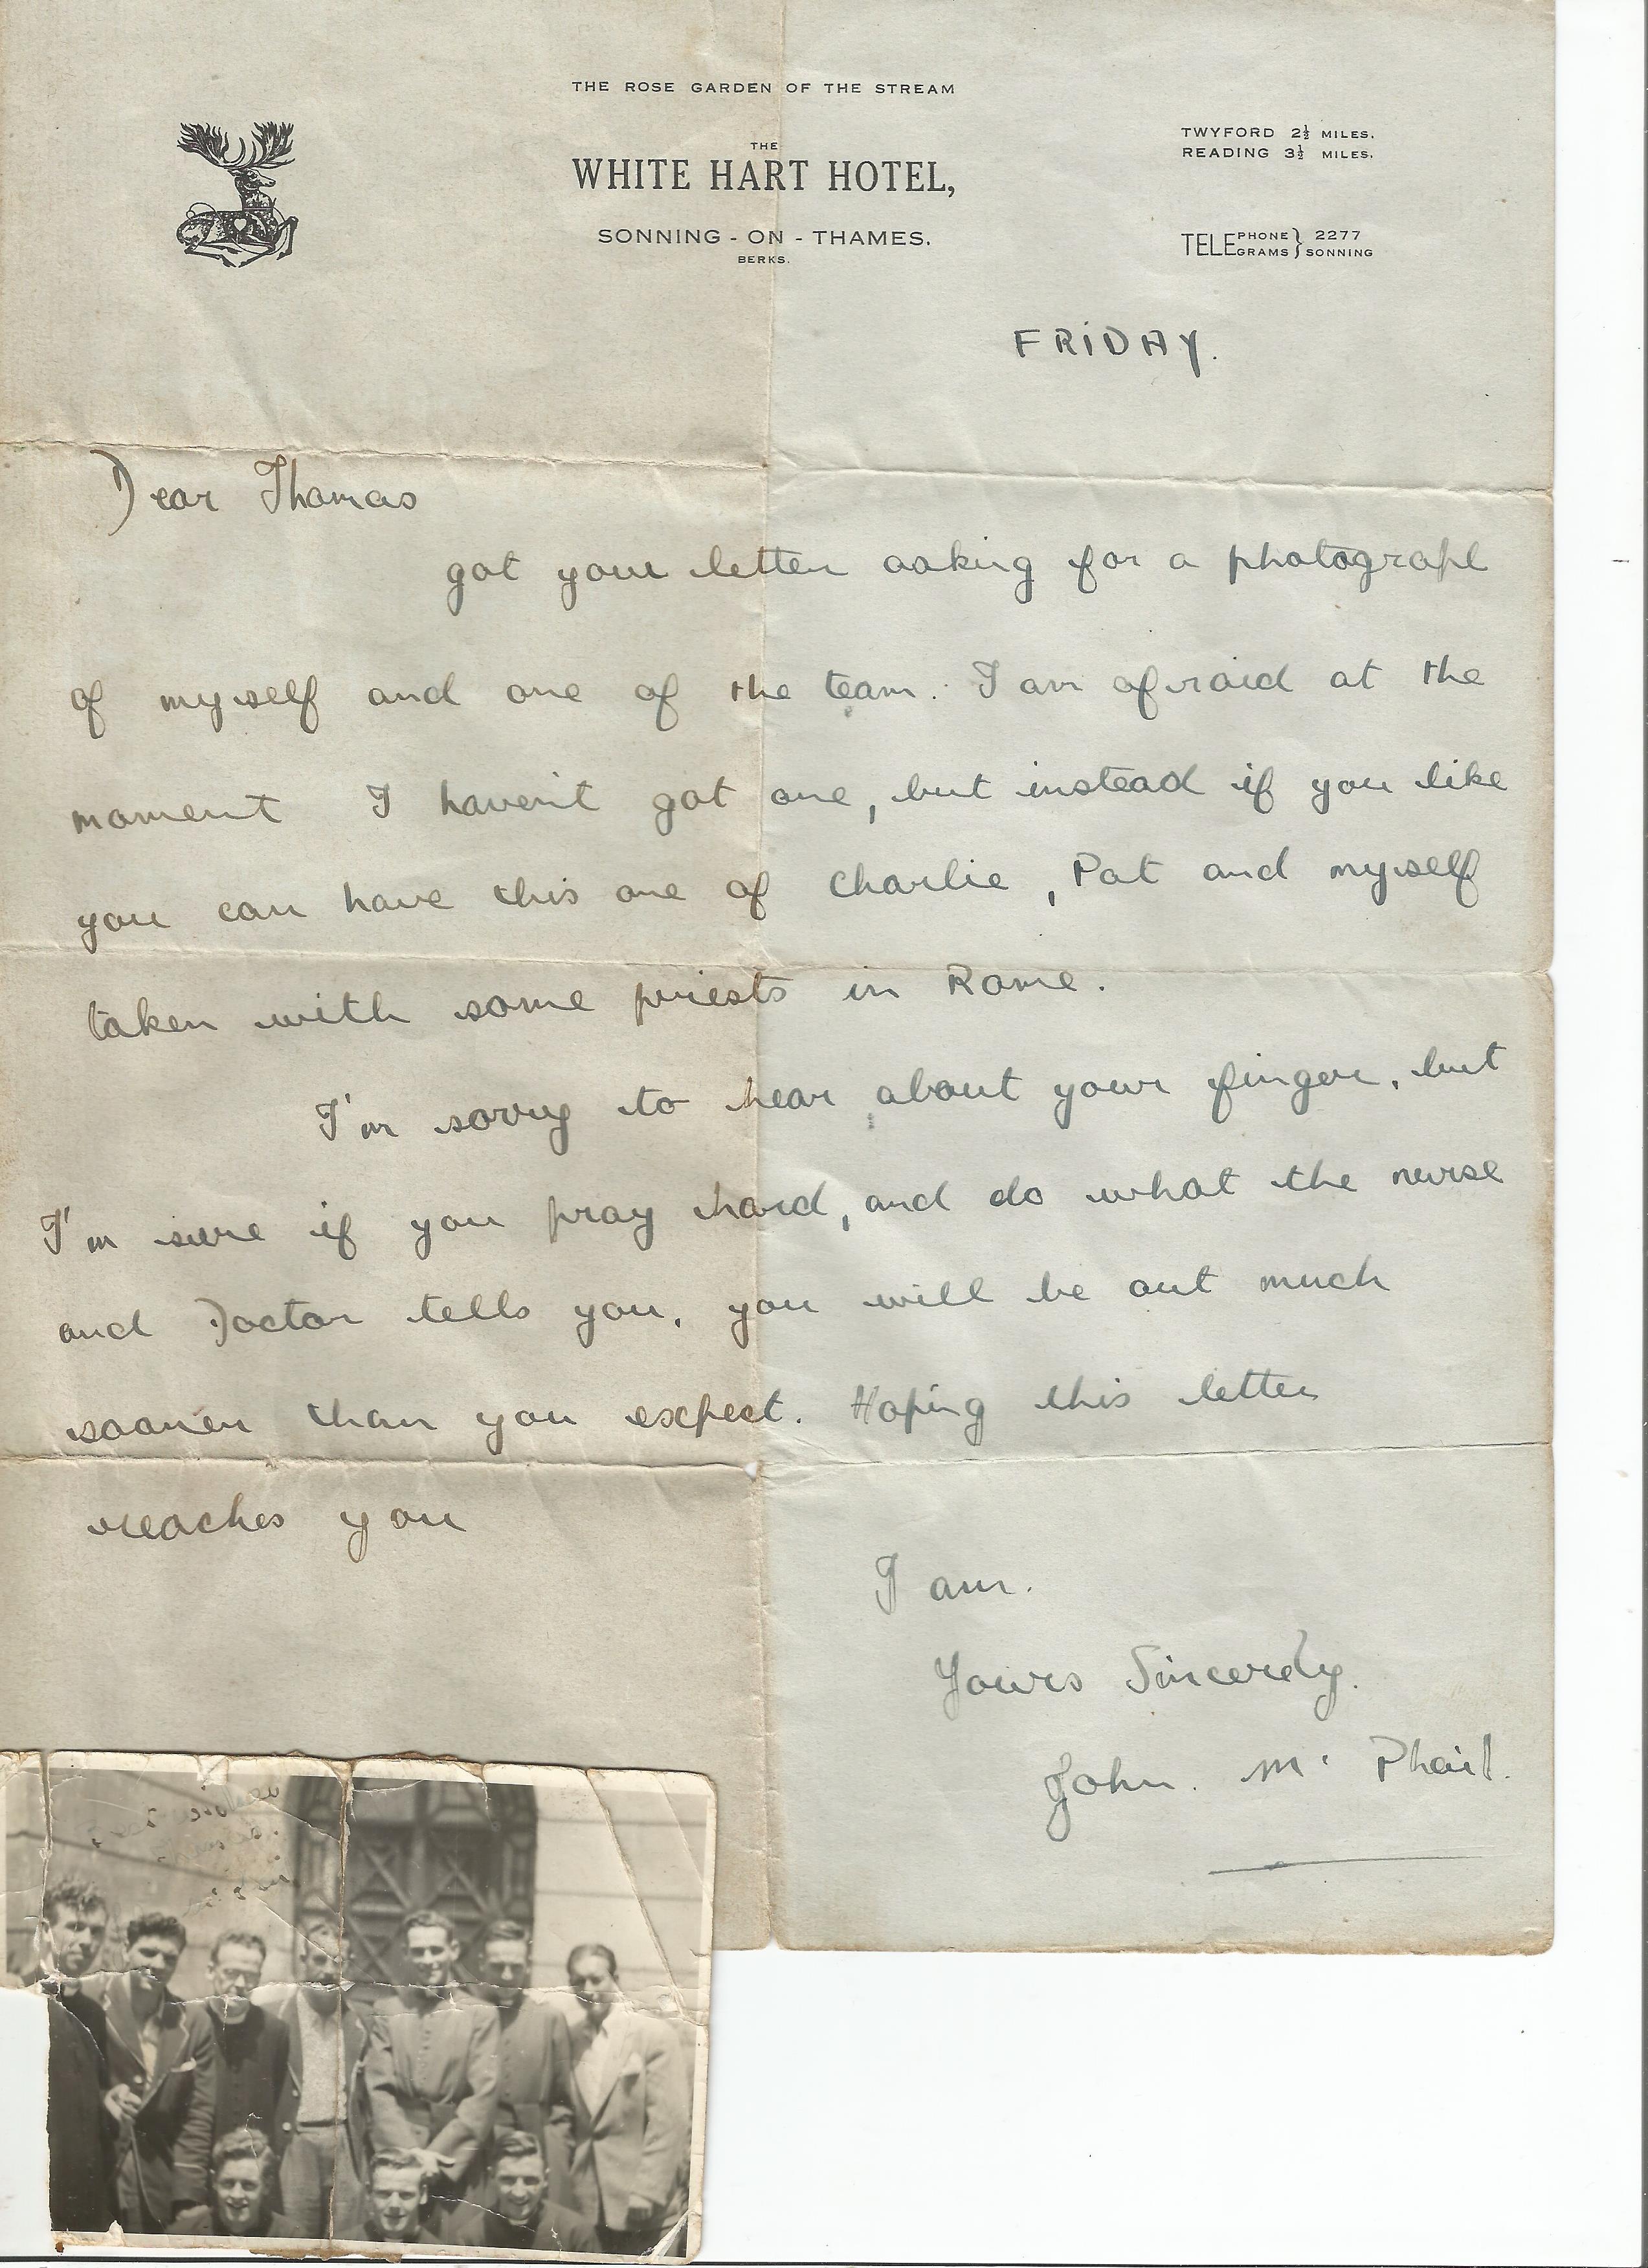 THE ROSE GARDEN OF THE STREAM
THE
WHITE HART HOTEL,
SONNING - ON - THAMES.
BERKS.
TWYFORD 2½ MILES.
READING 3½ MILES.
TELEPHONE } 2277
TELEGRAMS } SONNING
FRIDAY.
Dear Thomas
got your letter asking for a photograph
of myself and one of the team. I am afraid at the
moment I haven't got one, but instead if you like
you can have this one of Charlie, Pat and myself
taken with some priests in Rome.
I'm sorry to hear about your finger, but
I'm sure if you pray hard, and do what the nurse
and Doctor tells you, you will be out much
sooner than you expect. Hoping this letter
reaches you
I am.
Yours Sincerely.
John. Mc Phail.